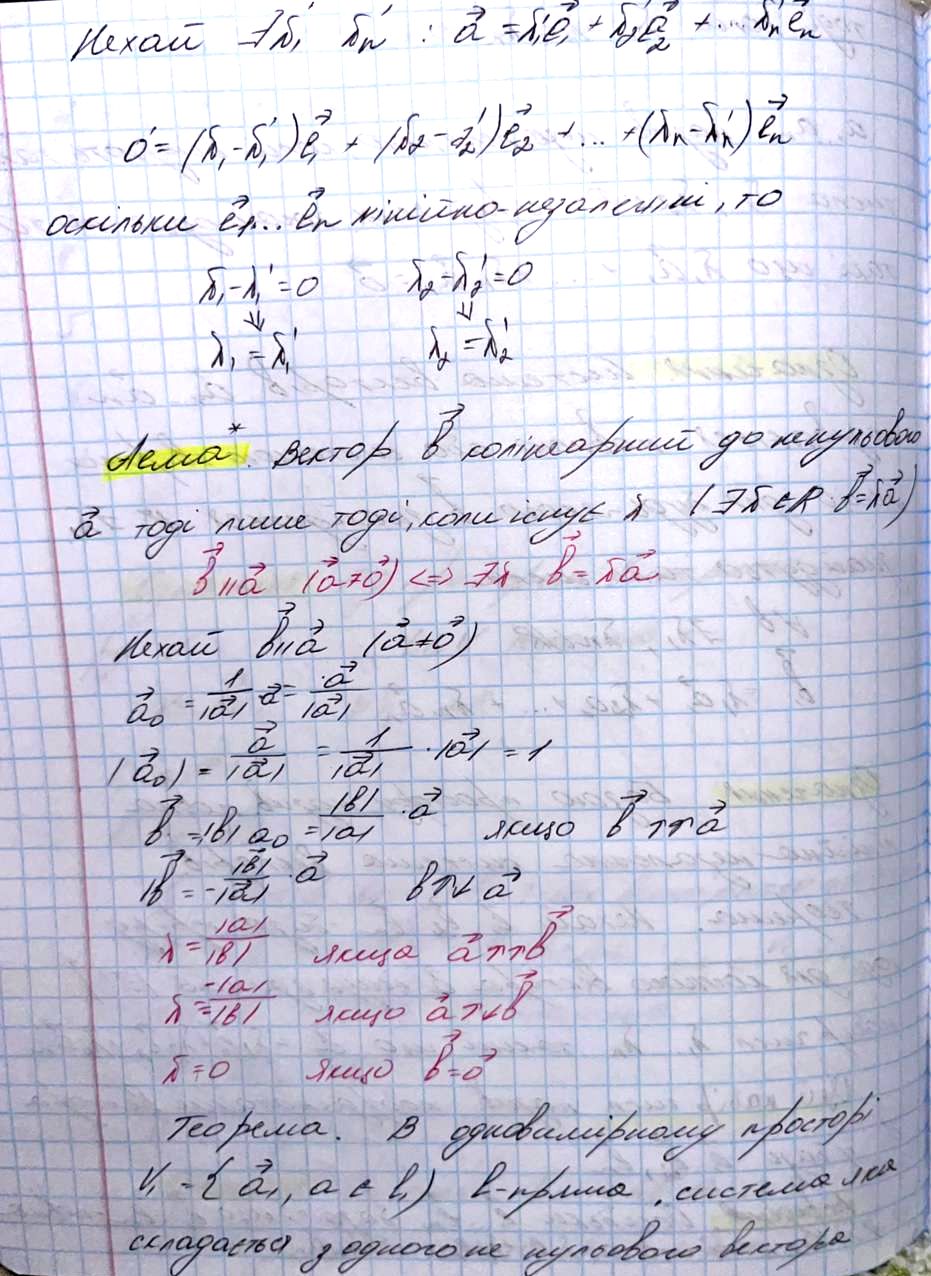 Нехай ∃λ₁' λₙ' : a⃗ = λ₁'e⃗₁ + λ₂'e⃗₂ + ... λₙ'e⃗ₙ
0⃗ = (λ₁-λ₁')e⃗₁ + (λ₂-λ₂')e⃗₂ + ... +(λₙ-λₙ')e⃗ₙ
оскільки e⃗₁...e⃗ₙ лінійно-незалежні, то
λ₁-λ₁'=0 λ₂-λ₂'=0
⇓ ⇓
λ₁=λ₁' λ₂=λ₂'
Лема*. Вектор b⃗ колінеарний до ненульового
a⃗ тоді лише тоді, коли існує λ (∃λ∈R b⃗=λa⃗)
b⃗||a⃗ (a⃗≠0⃗) <=> ∃λ b⃗=λa⃗
Нехай b⃗||a⃗ (a⃗≠0⃗)
a⃗₀ = 1/|a⃗| · a⃗ = a⃗/|a⃗|
|a⃗₀| = a⃗/|a⃗| = 1/|a⃗| · |a⃗| = 1
b⃗ = |b| a₀ = |b|/|a| · a⃗ якщо b⃗ ↑↑ a⃗
b⃗ = -|b⃗|/|a⃗| · a⃗ b ↑↓ a⃗
λ = |a|/|b| якщо a⃗ ↑↑ b⃗
λ = -|a|/|b| якщо a⃗ ↑↓ b⃗
λ=0 якщо b⃗=0⃗
Теорема. В одновимірному просторі
V₁ = { a⃗₁, a ∈ l₁) l-пряма, система яка
складається з одного не нульового вектора